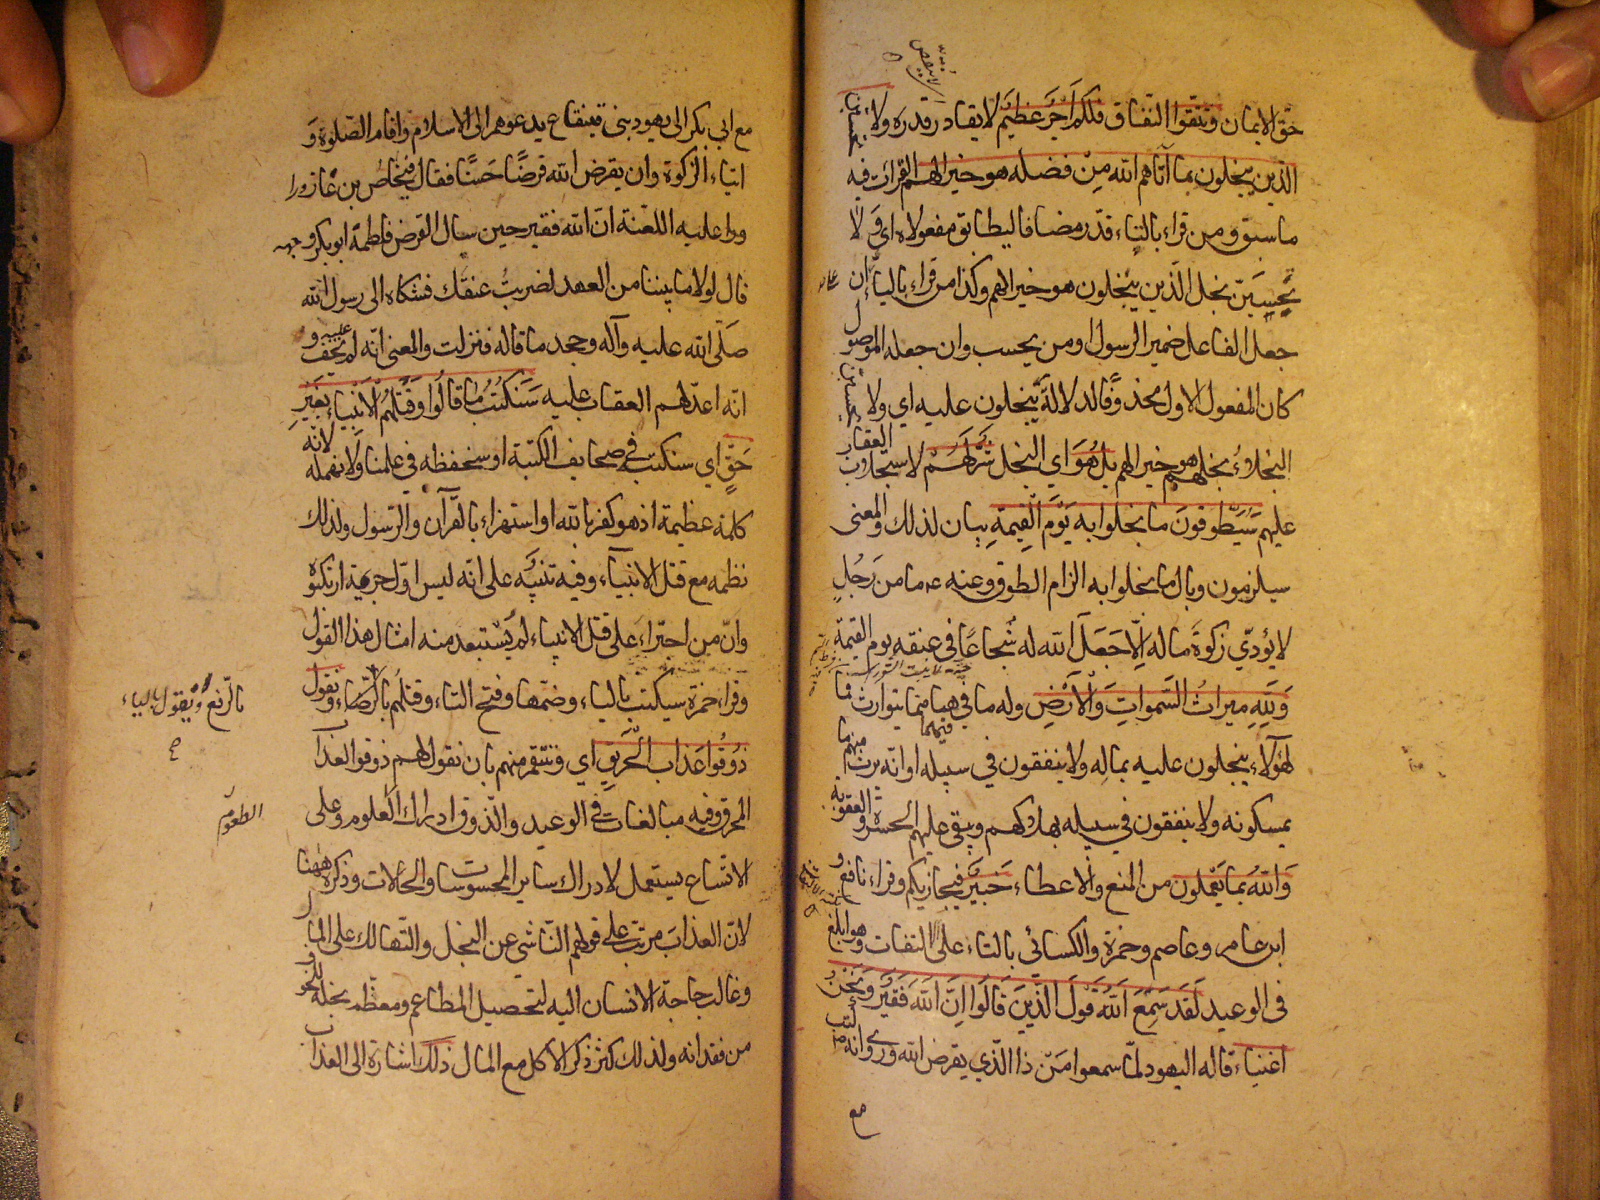 حق الايمان وتتقوا النفاق فلكم اجر عظيم لا يقادر قدره ولا يحسبن
الذين يبخلون بما آتاهم الله من فضله هو خيرا لهم القراات فيه
ما سبق ومن قراء بالتاء قدر مضافا ليطابق مفعولاه اي ولا
تحسبن بخل الذين يبخلون هو خيرا لهم وكذا من قراء بالياء ان
جعل الفاعل ضمير الرسول او من يحسب وان جعله الموصول
كان المفعول الاول محذوفا لدلالة يبخلون عليه اي ولا يحسبن
البخلاء بخلهم هو خيرا لهم بل هو اي البخل شر لهم لاستجلاب العقاب
عليهم سيطوقون ما بخلوا به يوم القيمة بيان لذلك والمعنى
سيلزمون وبال ما بخلوا به الزام الطوق وعنه ع ما من رجل
لا يؤدي زكوة ماله الا جعل الله له شجاعا في عنقه يوم القيمة
ولله ميراث السموات والارض وله ما فيهما مما يتوارث فما
لهؤلاء يبخلون عليه بماله ولا ينفقون في سبيله او انه يرث منهم ما
يمسكونه ولا ينفقون في سبيله بهلاكهم ويبقى عليهم الحسرة والعقوبة
والله بما يعملون من المنع والاعطاء خبير فيجازيكم وقراء نافع و
ابن عامر وعاصم وحمزة والكسائي بالتاء على الالتفات وهو ابلغ
في الوعيد لقد سمع الله قول الذين قالوا ان الله فقير ونحن
اغنياء قاله اليهود لما سمعوا من ذا الذي يقرض الله وروي انه كتب
مع
مع ابي بكر الى يهود بني قينقاع يدعوهم الى الاسلام واقام الصلوة و
ايتاء الزكوة وان يقرض الله قرضا حسنا فقال فنخاص بن عازورا
عليه اللعنة ان الله فقير حين سال القرض فلطمه ابو بكر وجهه
قال لولا ما بيننا من العهد لضربت عنقك فشكاه الى رسول الله
صلى الله عليه وآله وجحد ما قاله فنزلت والمعنى انه لم يخف عليه و
انه اعد لهم العقاب عليه سنكتب ما قالوا وقتلهم الانبياء بغير
حق اي سنكتب في صحايف الكتبة او سنحفظه في علمنا ولا نهمله لانه
كلمة عظيمة اذ هو كفر بالله او استهزاء بالقرآن والرسول ولذلك
نظمه مع قتل الانبياء وفيه تنبيه على انه ليس اول جريمة ارتكبوه
وان من اجتراء على قتل الانبياء لم يستبعد منه امثال هذا القول
وقراء حمزة سيكتب بالياء وضمها وفتح التاء وقتلهم ونقول
بالرفع ويقول بالياء
ذوقوا عذاب الحريق اي وننتقم منهم بان نقول لهم ذوقوا العذاب
المحرق وفيه مبالغات في الوعيد والذوق ادراك الطعوم وعلى
الطعوم
الاتساع يستعمل لادراك ساير المحسوسات والحالات وذكره ههنا
لان العذاب مرتب على قولهم الناشي عن البخل والتهالك على المال
وغالب حاجة الانسان اليه لتحصيل المطاعم ومعظم بخله للخوف
من فقدانه ولذلك كثر ذكر الاكل مع المال ذلك اشارة الى العذاب